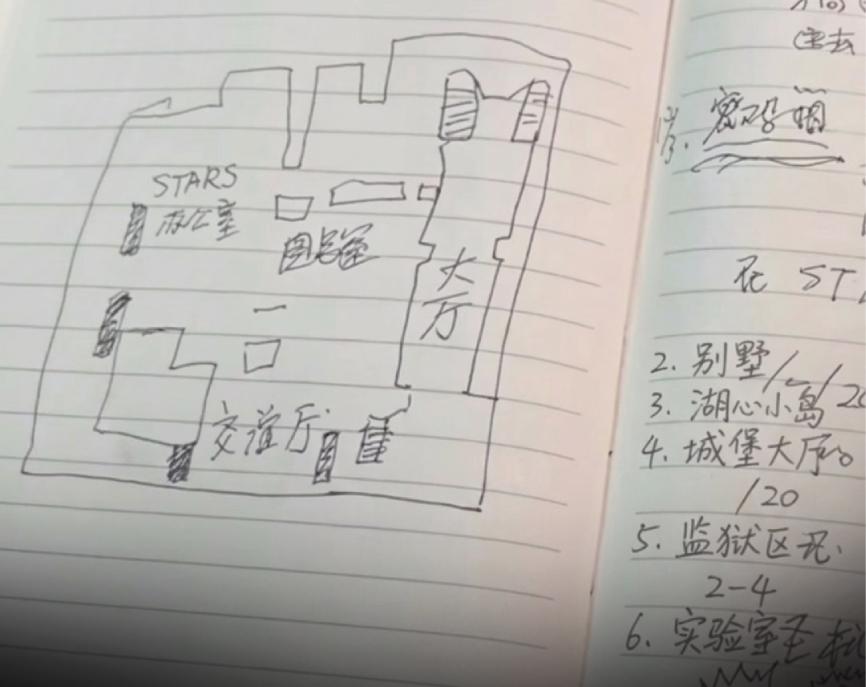 STARS
办公室
图书室
大厅
交谊厅
密码箱
在 ST
2. 别墅/
3. 湖心小岛/20
4. 城堡大厅。
/20
5. 监狱区
2-4
6. 实验室